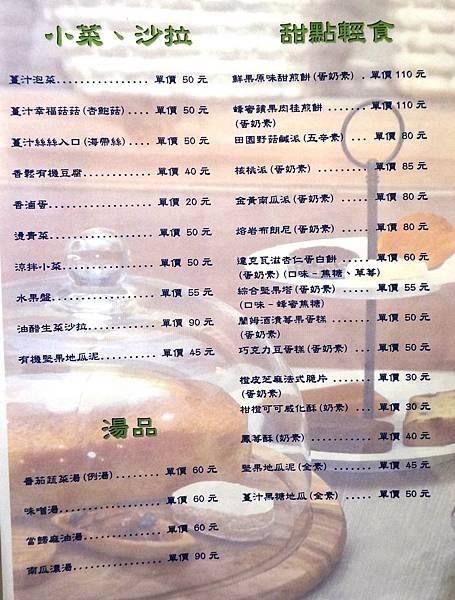 小菜、沙拉
薑汁泡菜................ 單價 50 元
薑汁幸福菇菇(杏鮑菇).... 單價 50 元
薑汁絲絲入口(海帶絲).... 單價 50 元
香鬆有機豆腐............ 單價 40 元
香滷蛋.................. 單價 20 元
燙青菜.................. 單價 50 元
涼拌小菜................ 單價 50 元
水果盤.................. 單價 55 元
油醋生菜沙拉............ 單價 90 元
有機堅果地瓜泥.......... 單價 45 元
湯品
番茄蔬菜湯(例湯)........ 單價 60 元
味噌湯.................. 單價 60 元
當歸麻油湯.............. 單價 60 元
南瓜濃湯................ 單價 90 元
甜點輕食
鮮果原味甜煎餅(蛋奶素) . 單價 110 元
蜂蜜蘋果肉桂煎餅........ 單價 110 元
(蛋奶素)
田園野菇鹹派(五辛素) ... 單價 80 元
核桃派(蛋奶素) ......... 單價 85 元
金黃南瓜派(蛋奶素) ..... 單價 80 元
熔岩布朗尼(蛋奶素) ..... 單價 80 元
達克瓦滋杏仁蛋白餅 ..... 單價 60 元
(蛋奶素)(口味-焦糖、草莓)
綜合堅果塔(蛋奶素) ..... 單價 55 元
(口味-蜂蜜焦糖)
蘭姆酒漬莓果蛋糕........ 單價 50 元
(蛋奶素)
巧克力豆蛋糕(蛋奶素) ... 單價 50 元
橙皮芝麻法式脆片 ....... 單價 30 元
(蛋奶素)
柑橙可可威化酥(奶素) ... 單價 30 元
鳳梨酥(奶素) ........... 單價 40 元
堅果地瓜泥(全素) ....... 單價 45 元
薑汁黑糖地瓜(全素) ..... 單價 50 元